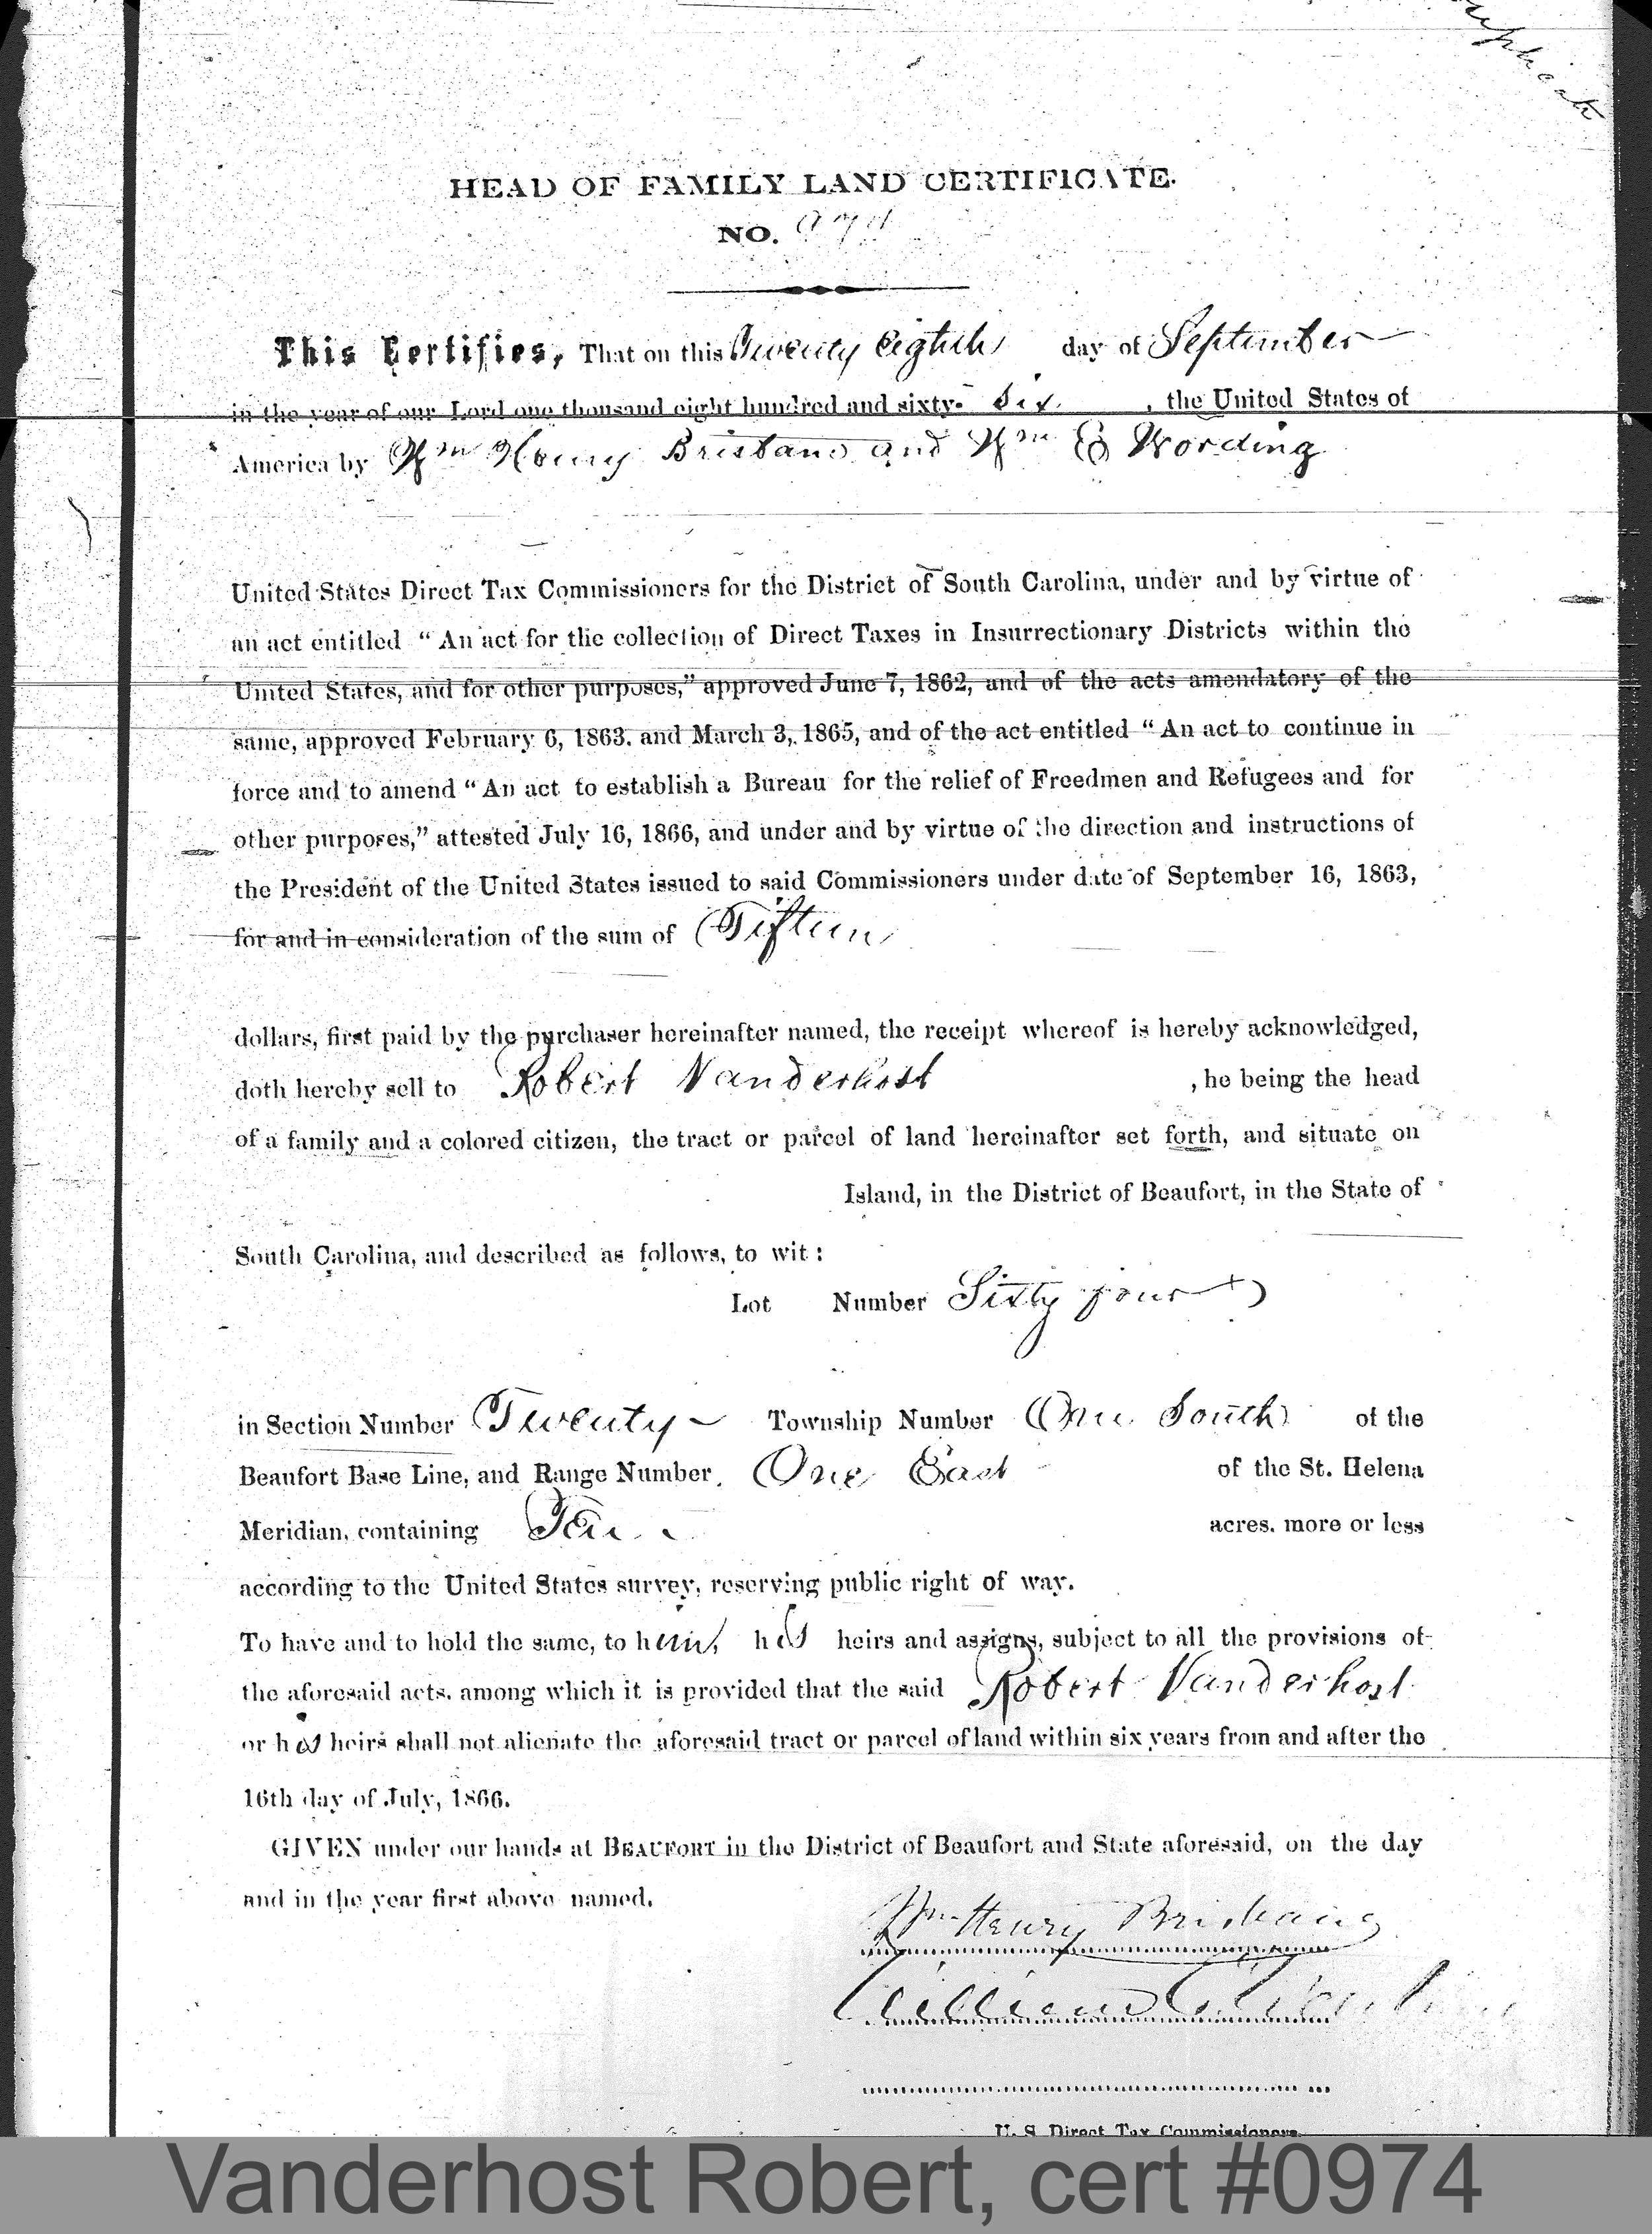 HEAD OF FAMILY LAND CERTIFICATE.
NO. 974
This Certifies, That on this Twenty eighth day of September
in the year of our Lord one thousand eight hundred and sixty- six , the United States of
America by Wm Henry Brisbane and Wm E Wording
United States Direct Tax Commissioners for the District of South Carolina, under and by virtue of
an act entitled “ An act for the collection of Direct Taxes in Insurrectionary Districts within the
United States, and for other purposes,” approved June 7, 1862, and of the acts amendatory of the
same, approved February 6, 1863. and March 3, 1865, and of the act entitled “ An act to continue in
force and to amend “ An act to establish a Bureau for the relief of Freedmen and Refugees and for
other purposes,” attested July 16, 1866, and under and by virtue of the direction and instructions of
the President of the United States issued to said Commissioners under date of September 16, 1863,
for and in consideration of the sum of Fifteen
dollars, first paid by the purchaser hereinafter named, the receipt whereof is hereby acknowledged,
doth hereby sell to Robert Vanderhost , he being the head
of a family and a colored citizen, the tract or parcel of land hereinafter set forth, and situate on
Island, in the District of Beaufort, in the State of
South Carolina, and described as follows, to wit :
Lot Number Sixty four
in Section Number Twenty Township Number One South of the
Beaufort Base Line, and Range Number One East of the St. Helena
Meridian, containing Ten acres. more or less
according to the United States survey, reserving public right of way.
To have and to hold the same, to him, his heirs and assigns, subject to all the provisions of
the aforesaid acts. among which it is provided that the said Robert Vanderhost
or his heirs shall not alienate the aforesaid tract or parcel of land within six years from and after the
16th day of July, 1866.
GIVEN under our hands at BEAUFORT in the District of Beaufort and State aforesaid, on the day
and in the year first above named.
Wm Henry Brisbane
William E Wording
U. S. Direct Tax Commissioners.
Vanderhost Robert, cert #0974